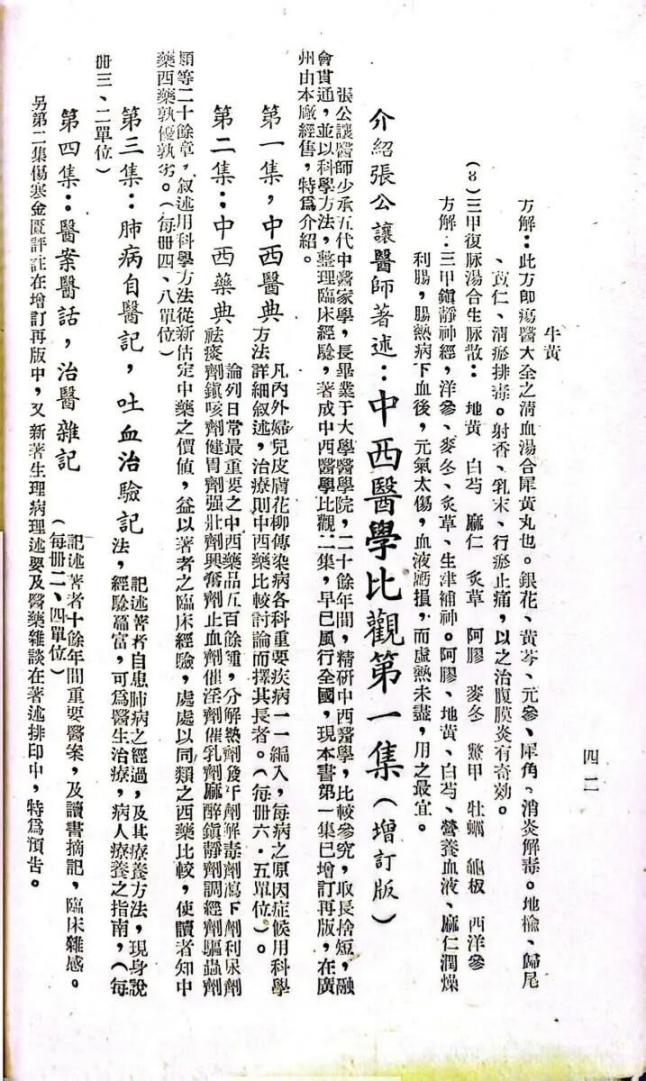 四二
牛黃
方解：此方即瘍醫大全之清血湯合犀黃丸也。銀花、黃芩、元參、犀角、消炎解毒。地榆、歸尾
、苡仁、清瘀排毒。射香、乳末、行瘀止痛，以之治腹膜炎有奇効。
(8)三甲復脉湯合生脉散： 地黃 白芍 麻仁 炙草 阿膠 麥冬 鱉甲 牡蠣 龜板 西洋參
方解：三甲鎮靜神經，洋參、麥冬、炙草、生津補神。阿膠、地黃、白芍、營養血液、麻仁潤燥
利腸，腸熱病下血後，元氣太傷，血液虧損，而虛熱未盡，用之最宜。
介紹張公讓醫師著述：中西醫學比觀第一集（增訂版）
張公讓醫師少承五代中醫家學，長畢業于大學醫學院，二十餘年間，精研中西醫學，比較參究，取長捨短，融
會貫通，並以科學方法，整理臨床經驗，著成中西醫學比觀二集，早已風行全國，現本書第一集已增訂再版，在廣
州由本廠經售，特爲介紹。
第一集，中西醫典
凡內外婦兒皮膚花柳傳染病各科重要疾病一一編入，每病之原因症候用科學
方法詳細叙述，治療則中西藥比較討論而擇其長者。（每冊六·五單位）。
第二集：中西藥典
論列日常最重要之中西藥品五百餘種，分解熱劑發汗劑解毒劑瀉下劑利尿劑
祛痰劑鎮咳劑健胃劑强壯劑興奮劑止血劑催淫劑催乳劑麻醉鎮靜劑調經劑驅蟲劑
類等二十餘章，叙述用科學方法從新估定中藥之價值，益以著者之臨床經驗，處處以同類之西藥比較，使讀者知中
藥西藥孰優孰劣。（每冊四、八單位）
第三集：肺病自醫記，吐血治驗記
記述著者自患肺病之經過，及其療養方法，現身說
法，經驗豐富，可爲醫生治療，病人療養之指南，（每
冊三、二單位）
第四集：醫案醫話，治醫雜記
記述著者十餘年間重要醫案，及讀書摘記，臨床雜感。
（每冊二、四單位）
另第二集傷寒金匱評註在增訂再版中，又新著生理病理述要及醫藥雜談在著述排印中，特爲預告。